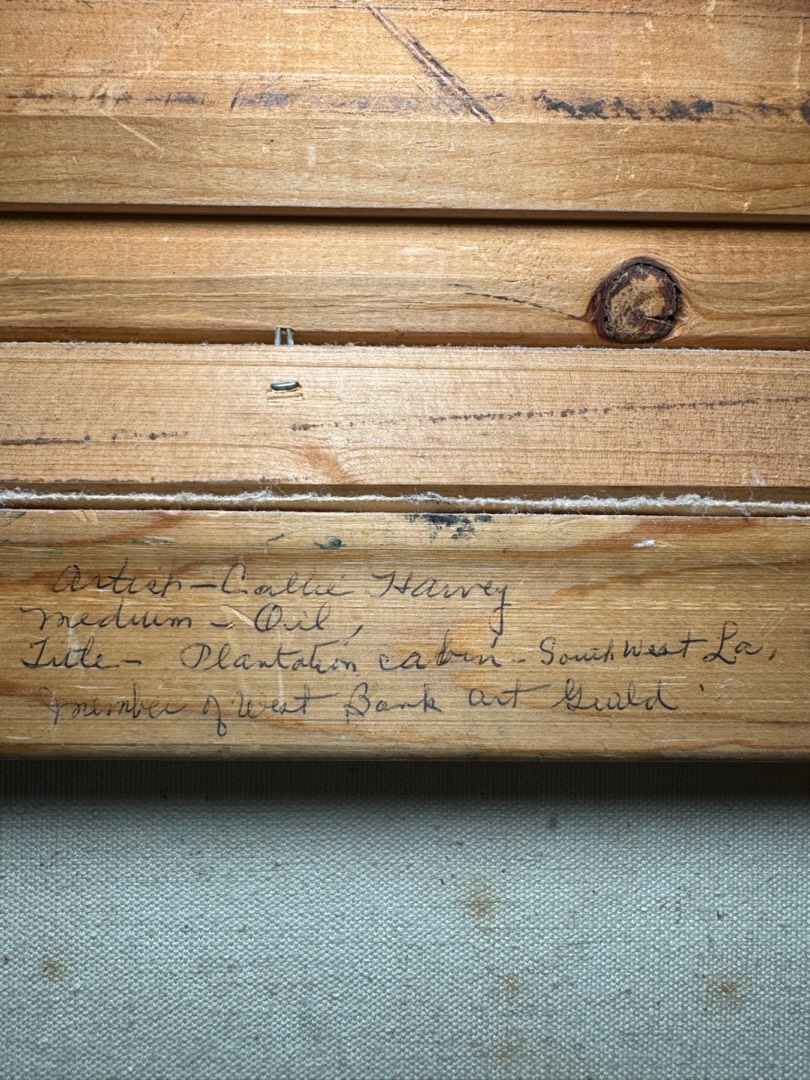 Artist - Callie Harvey
Medium - Oil,
Title - Plantation cabin - SouthWest La,
member of West Bank art Guild